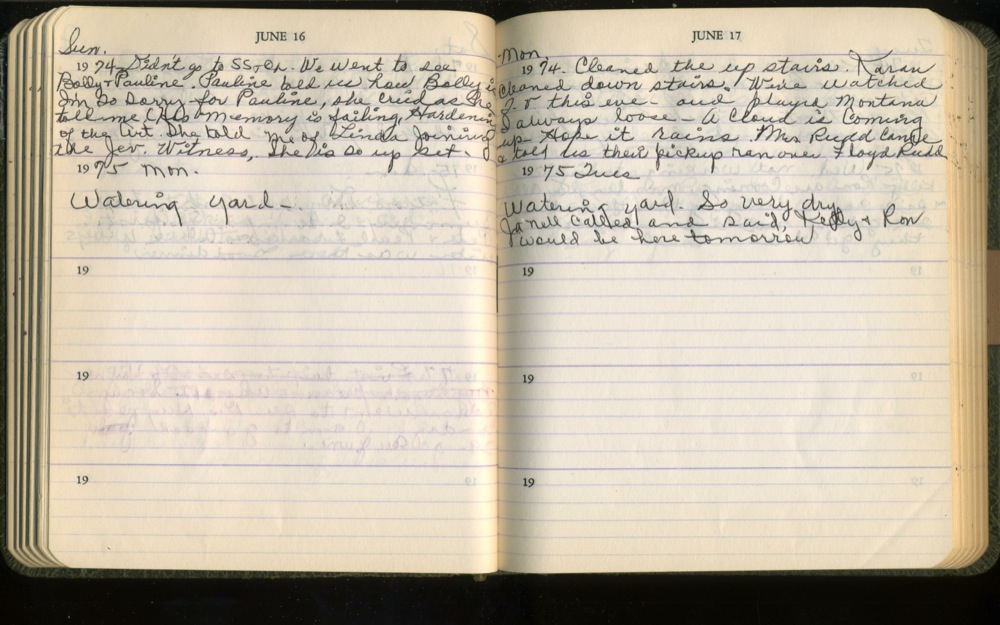 JUNE 16
Sun.
1974 Didn't go to SS + Ch. We went to see
Bolly + Pauline. Pauline told us how Bolly is
I'm so sorry for Pauline, she cried as she
told me (his memory is failing, Hardening
of the Art. She told me of Linda Joining
the Jev. Witness, She is so up set.
1975 Mon.
Watering yard -
19
19
19
JUNE 17
Mon
1974. Cleaned the up stairs. Karan
cleaned down stairs. We've watched
T.V this eve - and played Montana
I always loose - A Cloud is Coming
up - Hope it rains. Mrs Rudd
& told us their pickup ran over Floyd Rudd
1975 Tues
Watering yard. So very dry
Janell called and said, & Ron
would be here tomorrow
19
19
19